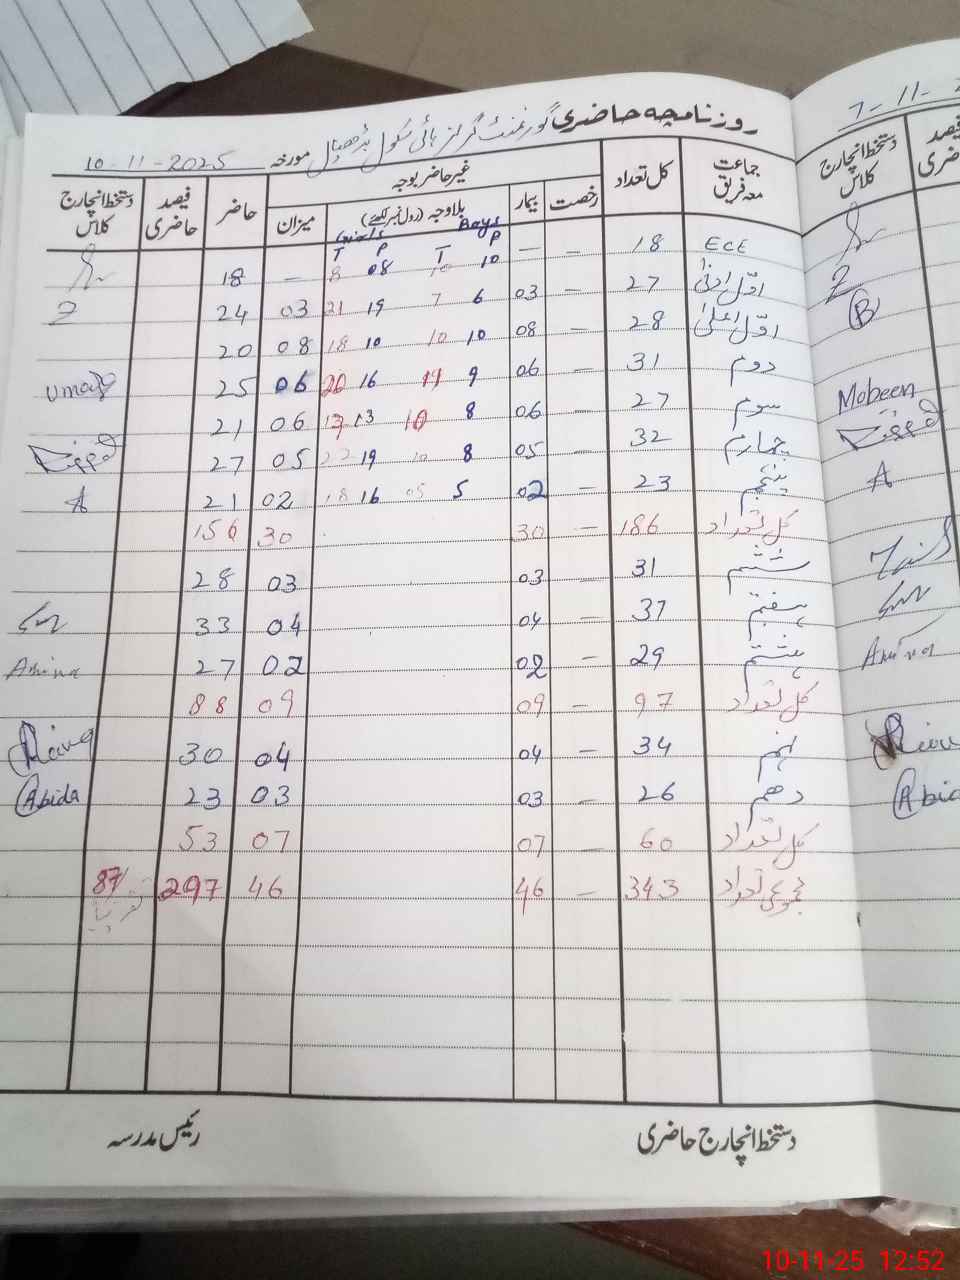 روزنامچہ حاضری گورنمنٹ گرلز ہائی سکول مورخہ 10-11-2025
جماعت معہ فریق کل تعداد غیر حاضر بوجہ حاضر فیصد حاضری دستخط انچارج کلاس
رخصت بیمار بلاوجہ (رول نمبر لکھیے) میزان
Girls Boys
T P T P
ECE 18 — — 10 10 08 8 — 18
اوّل ادنیٰ 27 — 03 6 7 19 21 03 24
اوّل اعلیٰ 28 — 08 10 10 10 18 08 20
دوم 31 — 06 9 11 16 20 06 25 Umar
سوم 27 — 06 8 10 13 17 06 21
چہارم 32 — 05 8 10 19 22 05 27
پنجم 23 — 02 5 05 16 18 02 21 A
کل تعداد 186 — 30 30 156
ششم 31 — 03 03 28
ہفتم 37 — 04 04 33
ہشتم 29 — 02 02 27 Amina
کل تعداد 97 — 09 09 88
نہم 34 — 04 04 30
دھم 26 — 03 03 23 Abida
کل تعداد 60 — 07 07 53
مجموعی تعداد 343 — 46 46 297 87/ تقریباً
دستخط انچارج حاضری رئیس مدرسہ
7-11-2
فیصد حاضری دستخط انچارج کلاس
B
Mobeen
A
Amina
Abid
10-11-25 12:52